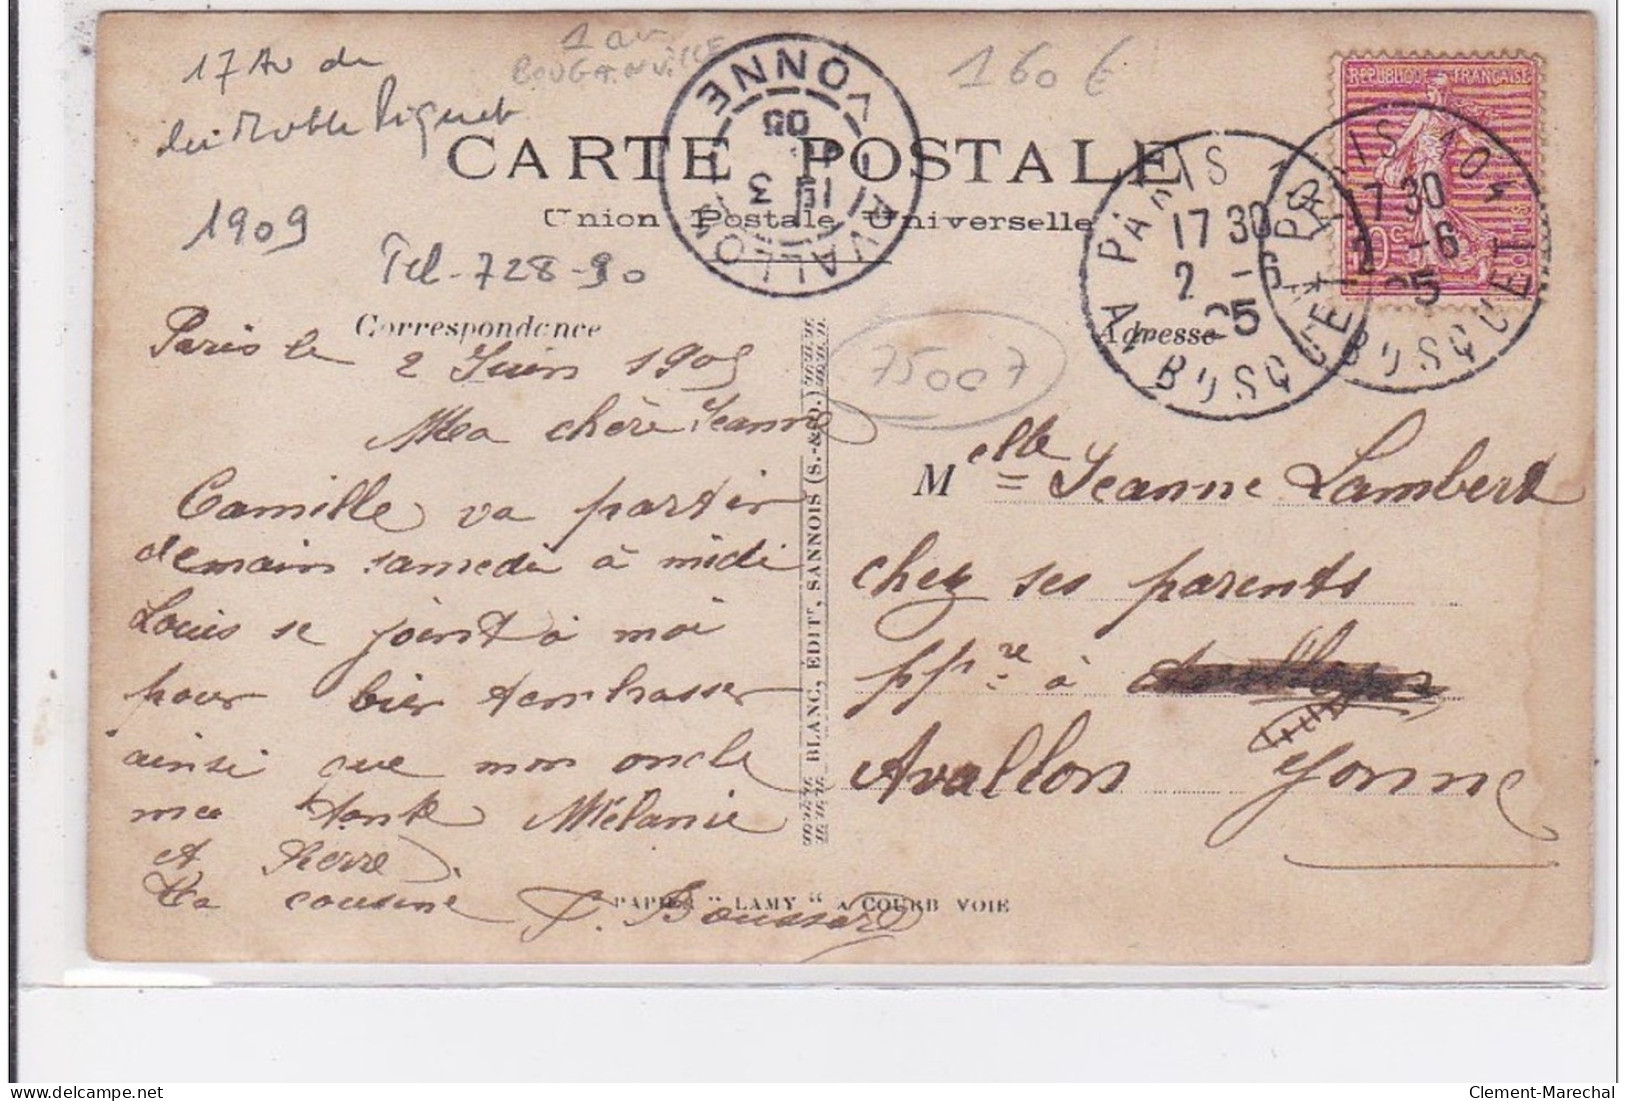 17 Av de
la Motte Piquet
1 av
BOUGAINVILLE
160 €
CARTE POSTALE
Union Postale Universelle
1909
Tel - 728-90
Correspondance
Adresse
75007
AVALLON YONNE
15 3
05
PARIS
17 30
2 -6
05
AV BOSQUET
PARIS
17 30
2 -6
05
BOSQUET
REPUBLIQUE FRANÇAISE
10c
POSTES
Paris le
2 Juin 1905
Ma chère Jeanne
Camille va partir
demain samedi à midi
Louis se joint à moi
pour bien t'embrasser
ainsi que mon oncle
ma tante Mélanie
et Pierre
Ta cousine J. Boussard
BLANC, ÉDITr, SANNOIS (S.-&-O.)
Melle Jeanne Lambert
chez ses parents
ppre à
Avallon Yonne
PAPIER "LAMY" A COURBEVOIE
Clement-Marechal